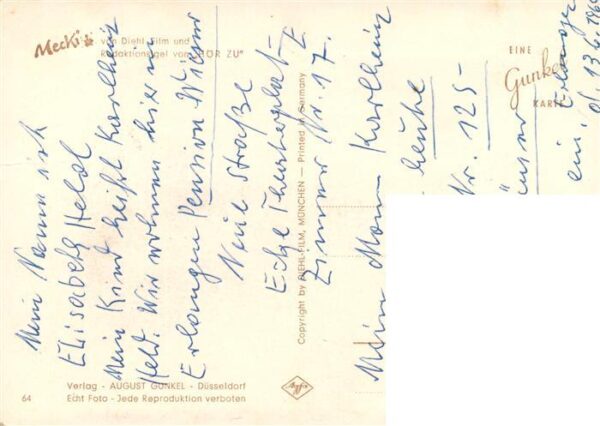 Mecki
von Diehl Film und
Redaktionsigel von "HÖR ZU"
EINE
Gunkel
KARTE
Erlangen
d. 13.6.196
Mein Name ist
Elisabeth Held
Mein Kind heißt Karlheinz
Held. Wir wohnen hier in
Erlangen Pension Wiesner
Neue Straße
Ecke Theaterplatz
Zimmer Nr. 17.
Mein Mann Karlheinz
heute
Nr. 125-
ein.
Copyright by DIEHL-FILM, MÜNCHEN — Printed in Germany
Agfa
Verlag - AUGUST GUNKEL - Düsseldorf
64 Echt Foto - Jede Reproduktion verboten